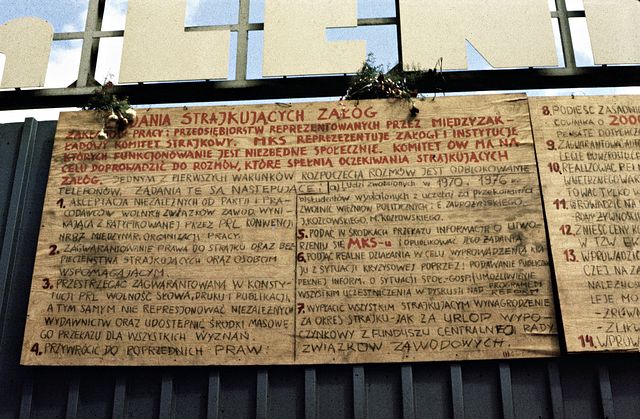 LENI
ŻĄDANIA STRAJKUJĄCYCH ZAŁÓG
ZAKŁADÓW PRACY I PRZEDSIĘBIORSTW REPREZENTOWANYCH PRZEZ MIĘDZYZAK-
ŁADOWY KOMITET STRAJKOWY. MKS REPREZENTUJE ZAŁOGI I INSTYTUCJE
KTÓRYCH FUNKCJONOWANIE JEST NIEZBĘDNE SPOŁECZNIE. KOMITET ÓW MA NA
CELU DOPROWADZIĆ DO ROZMÓW, KTÓRE SPEŁNIĄ OCZEKIWANIA STRAJKUJĄCYCH
ZAŁÓG. JEDNYM Z PIERWSZYCH WARUNKÓW ROZPOCZĘCIA ROZMÓW JEST ODBLOKOWANIE
TELEFONÓW. ŻĄDANIA TE SĄ NASTĘPUJĄCE:
1. AKCEPTACJA NIEZALEŻNYCH OD PARTII I PRA-
CODAWCÓW WOLNYCH ZWIĄZKÓW ZAWOD. WYNI-
KAJĄCA Z RATYFIKOWANEJ PRZEZ PRL KONWENCJI
NR 87 MIĘDZYNAR. ORGANIZACJI PRACY.
2. ZAGWARANTOWANIE PRAWA DO STRAJKU ORAZ BEZ-
PIECZEŃSTWA STRAJKUJĄCYCH ORAZ OSOBOM
WSPOMAGAJĄCYM.
3. PRZESTRZEGAĆ ZAGWARANTOWANĄ W KONSTY-
TUCJI PRL WOLNOŚĆ SŁOWA, DRUKU I PUBLIKACJI,
A TYM SAMYM NIE REPRESJONOWAĆ NIEZALEŻNYCH
WYDAWNICTW ORAZ UDOSTĘPNIĆ ŚRODKI MASOWE-
GO PRZEKAZU DLA WSZYSTKICH WYZNAŃ.
4. PRZYWRÓCIĆ DO POPRZEDNICH PRAW:
a) LUDZI ZWOLNIONYCH W 1970 I 1976 r.
b) STUDENTÓW WYDALONYCH Z UCZELNI ZA PRZEKONANIA
ZWANIE WIĘŹNIÓW POLITYCZNYCH: E. ZADROŻYŃSKIEGO,
J. KOZŁOWSKIEGO, M. KOZŁOWSKIEGO.
5. PODAĆ W ŚRODKACH PRZEKAZU INFORMACJĘ O UTWO-
RZENIU SIĘ MKS-u I OPUBLIKOWAĆ JEGO ŻĄDANIA
6. PODJĄĆ REALNE DZIAŁANIA W CELU WYPROWADZENIA KRA-
JU Z SYTUACJI KRYZYSOWEJ POPRZEZ: PODAWANIE PUBLICZNIE
PEŁNEJ INFORM. O SYTUACJI SPOŁ.-GOSP. I UMOŻLIWIENIE
WSZYSTKIM UCZESTNICZENIA W DYSKUSJI NAD PROGRAMEM
7. WYPŁACIĆ WSZYSTKIM STRAJKUJĄCYM WYNAGRODZENIE
ZA OKRES STRAJKU - JAK ZA URLOP WYPO-
CZYNKOWY Z FUNDUSZU CENTRALNEJ RADY
ZWIĄZKÓW ZAWODOWYCH.
8. PODNIEŚĆ ZASADN
2000
9. ZAGWARANTOWA
10. REALIZOWAĆ PEŁN
WAĆ TYLKO
11. WPROWADZIĆ NA
12. ZNIEŚĆ CENY K
W TZW. E
13. WPROWADZI
CZEJ NA
NALEŻNO
LEJE MO
- ZRÓWN
- ZLIK
14. WPROW